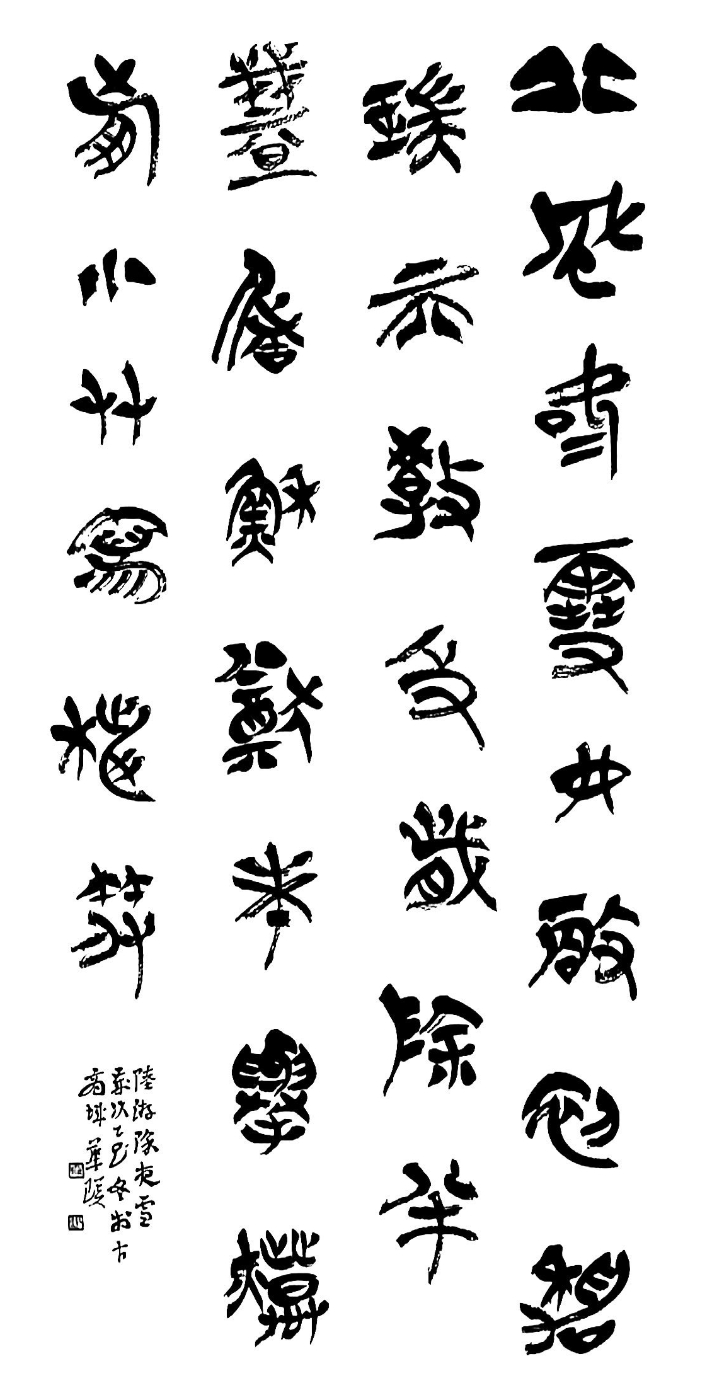 北風吹雪四更初嘉
瑞天教及歲除半
盞屠穌猶未舉燈
前小艸寫桃符
陸游除夜雪
歲次乙巳冬於古
高郵華